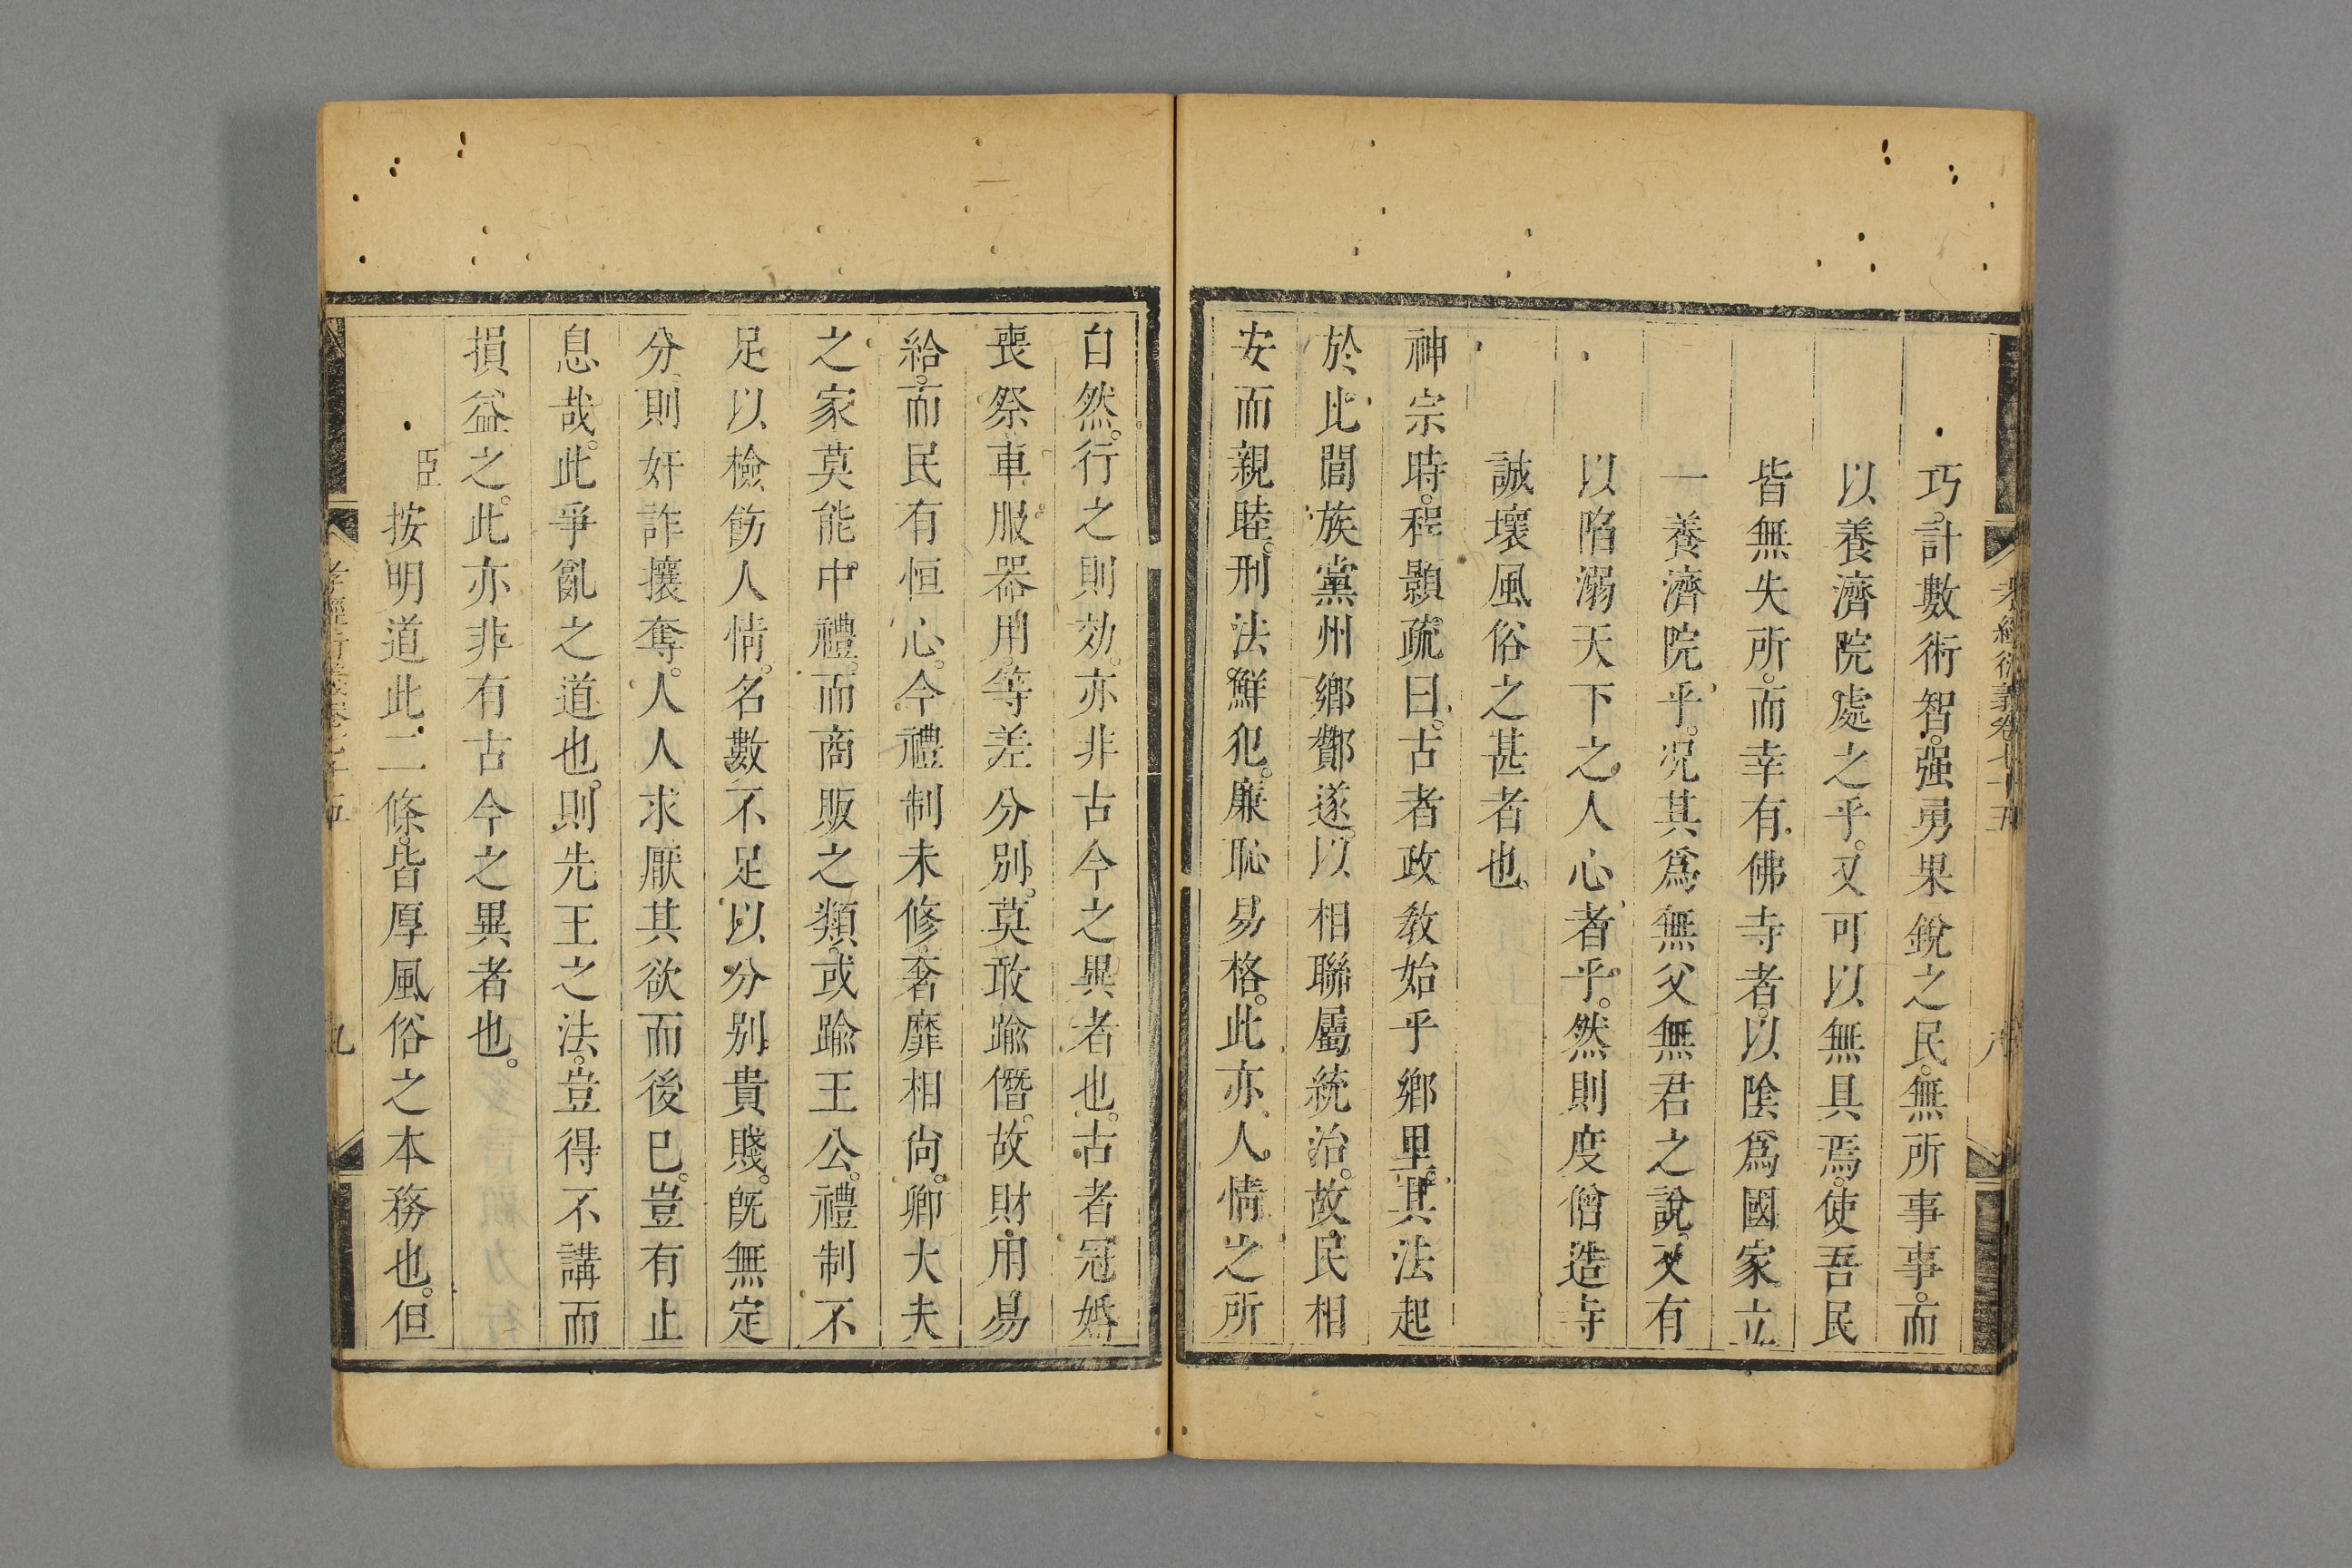 孝經衍義卷七十五　八
巧。計數術智。强勇果銳之民。無所事事。而
以養濟院處之乎。又可以無具焉。使吾民
皆無失所。而幸有佛寺者。以陰爲國家立
一養濟院乎。况其爲無父無君之說。又有
以陷溺天下之人心者乎。然則度僧造寺
誠壞風俗之甚者也。
神宗時。程顥疏曰。古者政敎始乎鄉里。其法起
於比閭族黨州鄉酇遂。以相聯屬統治。故民相
安而親睦。刑法鮮犯。廉恥易格。此亦人情之所
自然。行之則効。亦非古今之異者也。古者冠婚
喪祭車服器用。等差分别。莫敢踰僭。故財用易
給。而民有恒心。今禮制未修。奢靡相尙。卿大夫
之家莫能中禮。而商販之類。或踰王公。禮制不
足以檢飭人情。名數不足以分别貴賤。旣無定
分。則奸詐攘奪。人人求厭其欲而後已。豈有止
息哉。此爭亂之道也。則先王之法。豈得不講而
損益之。此亦非有古今之異者也。
臣按明道此二條。皆厚風俗之本務也。但
孝經衍義卷七十五　九